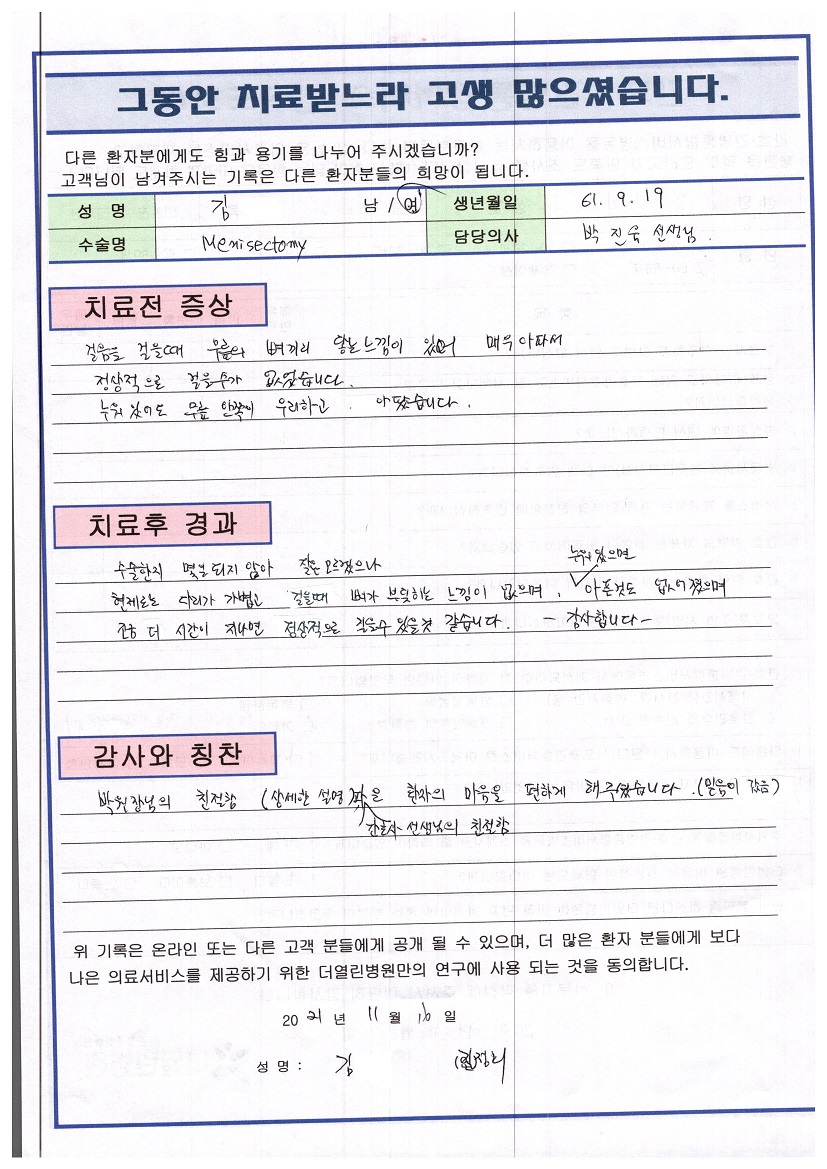 그동안 치료받느라 고생 많으셨습니다.
다른 환자분에게도 힘과 용기를 나누어 주시겠습니까?
고객님이 남겨주시는 기록은 다른 환자분들의 희망이 됩니다.
성 명 김 남 / 여 생년월일 61. 9. 19
수술명 Menisectomy 담당의사 박 진욱 선생님.
치료전 증상
걸음을 걸을때 무릎의 뼈끼리 닿는 느낌이 있어 매우 아파서
정상적으로 걸을수가 없었습니다.
누워 있어도 무릎 안쪽이 우리하고. 아팠습니다.
치료후 경과
수술한지 몇일 되지 않아 잘은 모르겠으나
누워 있으면
현재로는 다리가 가볍고 걸을때 뼈가 부딪히는 느낌이 없으며, 아픈것도 없어졌으며
조금 더 시간이 지나면 정상적으로 걸을수 있을것 같습니다. 감사합니다~
감사와 칭찬
박원장님의 친절함 (상세한 설명)과 을 환자의 마음을 편하게 해주셨습니다. (믿음이 갔음)
간호사 선생님의 친절함
위 기록은 온라인 또는 다른 고객 분들에게 공개 될 수 있으며, 더 많은 환자 분들에게 보다
나은 의료서비스를 제공하기 위한 더열린병원만의 연구에 사용 되는 것을 동의합니다.
20 21 년 11 월 16 일
성 명 : 김